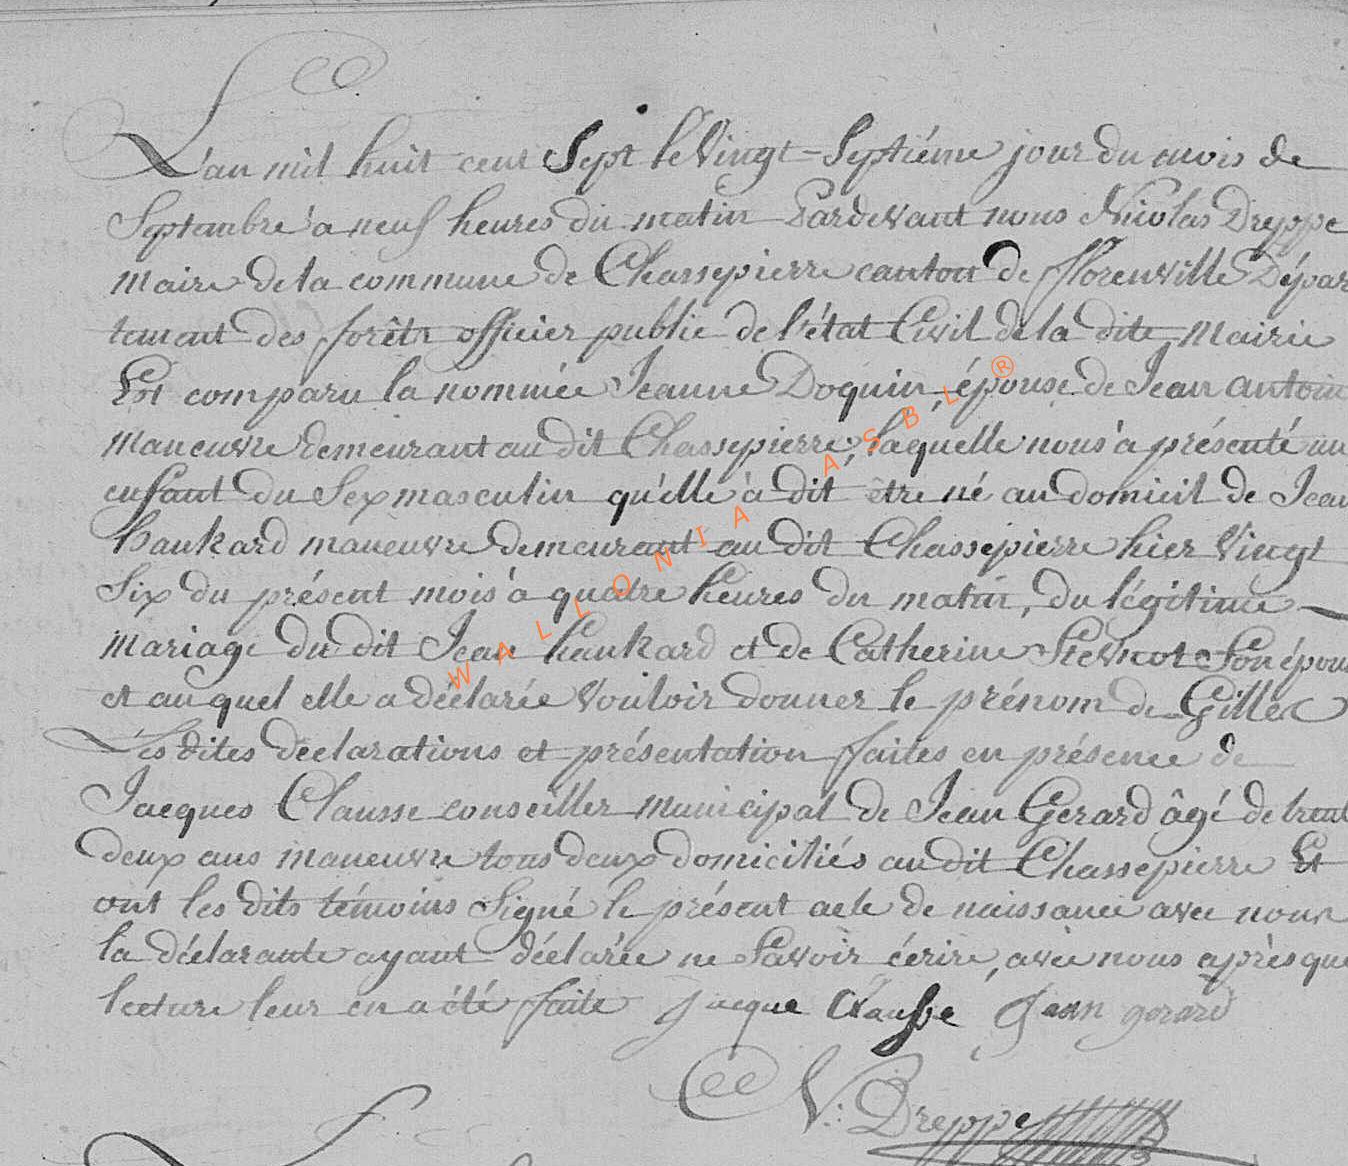 L'an mil huit cent Sept le Vingt-Septiéme jour du mois de
Septembre à neuf heures du matin Pardevant nous Nicolas Dreppe
Maire de la commune de Chassepierre canton de fflorenville Dépar
tement des forêts officier public de l'état Civil de la dite Mairie
Est comparu la nommée Jeanne Doquin, épouse de Jean antoine
Maneuvre demeurant au dit Chassepierre, laquelle nous a présenté un
enfant du Sex masculin qu'elle à dit être né au domicil de Jean
hankard maneuvre demeurant au dit Chassepierre hier Vingt
Six du présent mois à quatre heures du matin, du légitime
Mariage du dit Jean hankard et de Catherine Son épouse
et au quel elle a déclarée Vouloir donner le prénom de Gilles
Les dites déclarations et présentation faites en présence de
Jacques Clausse conseiller municipal de Jean Gerard âgé de trente
deux ans maneuvre tous deux domiciliés au dit Chassepierre Et
ont les dits témoins Signé le présent acte de naissance avec nous
la déclarante ayant déclarée ne Savoir écrire, avec nous après que
lecture leur en a été faite jacque Clausse Jean gerard
N: Dreppe
WALLONIA ASBL ®